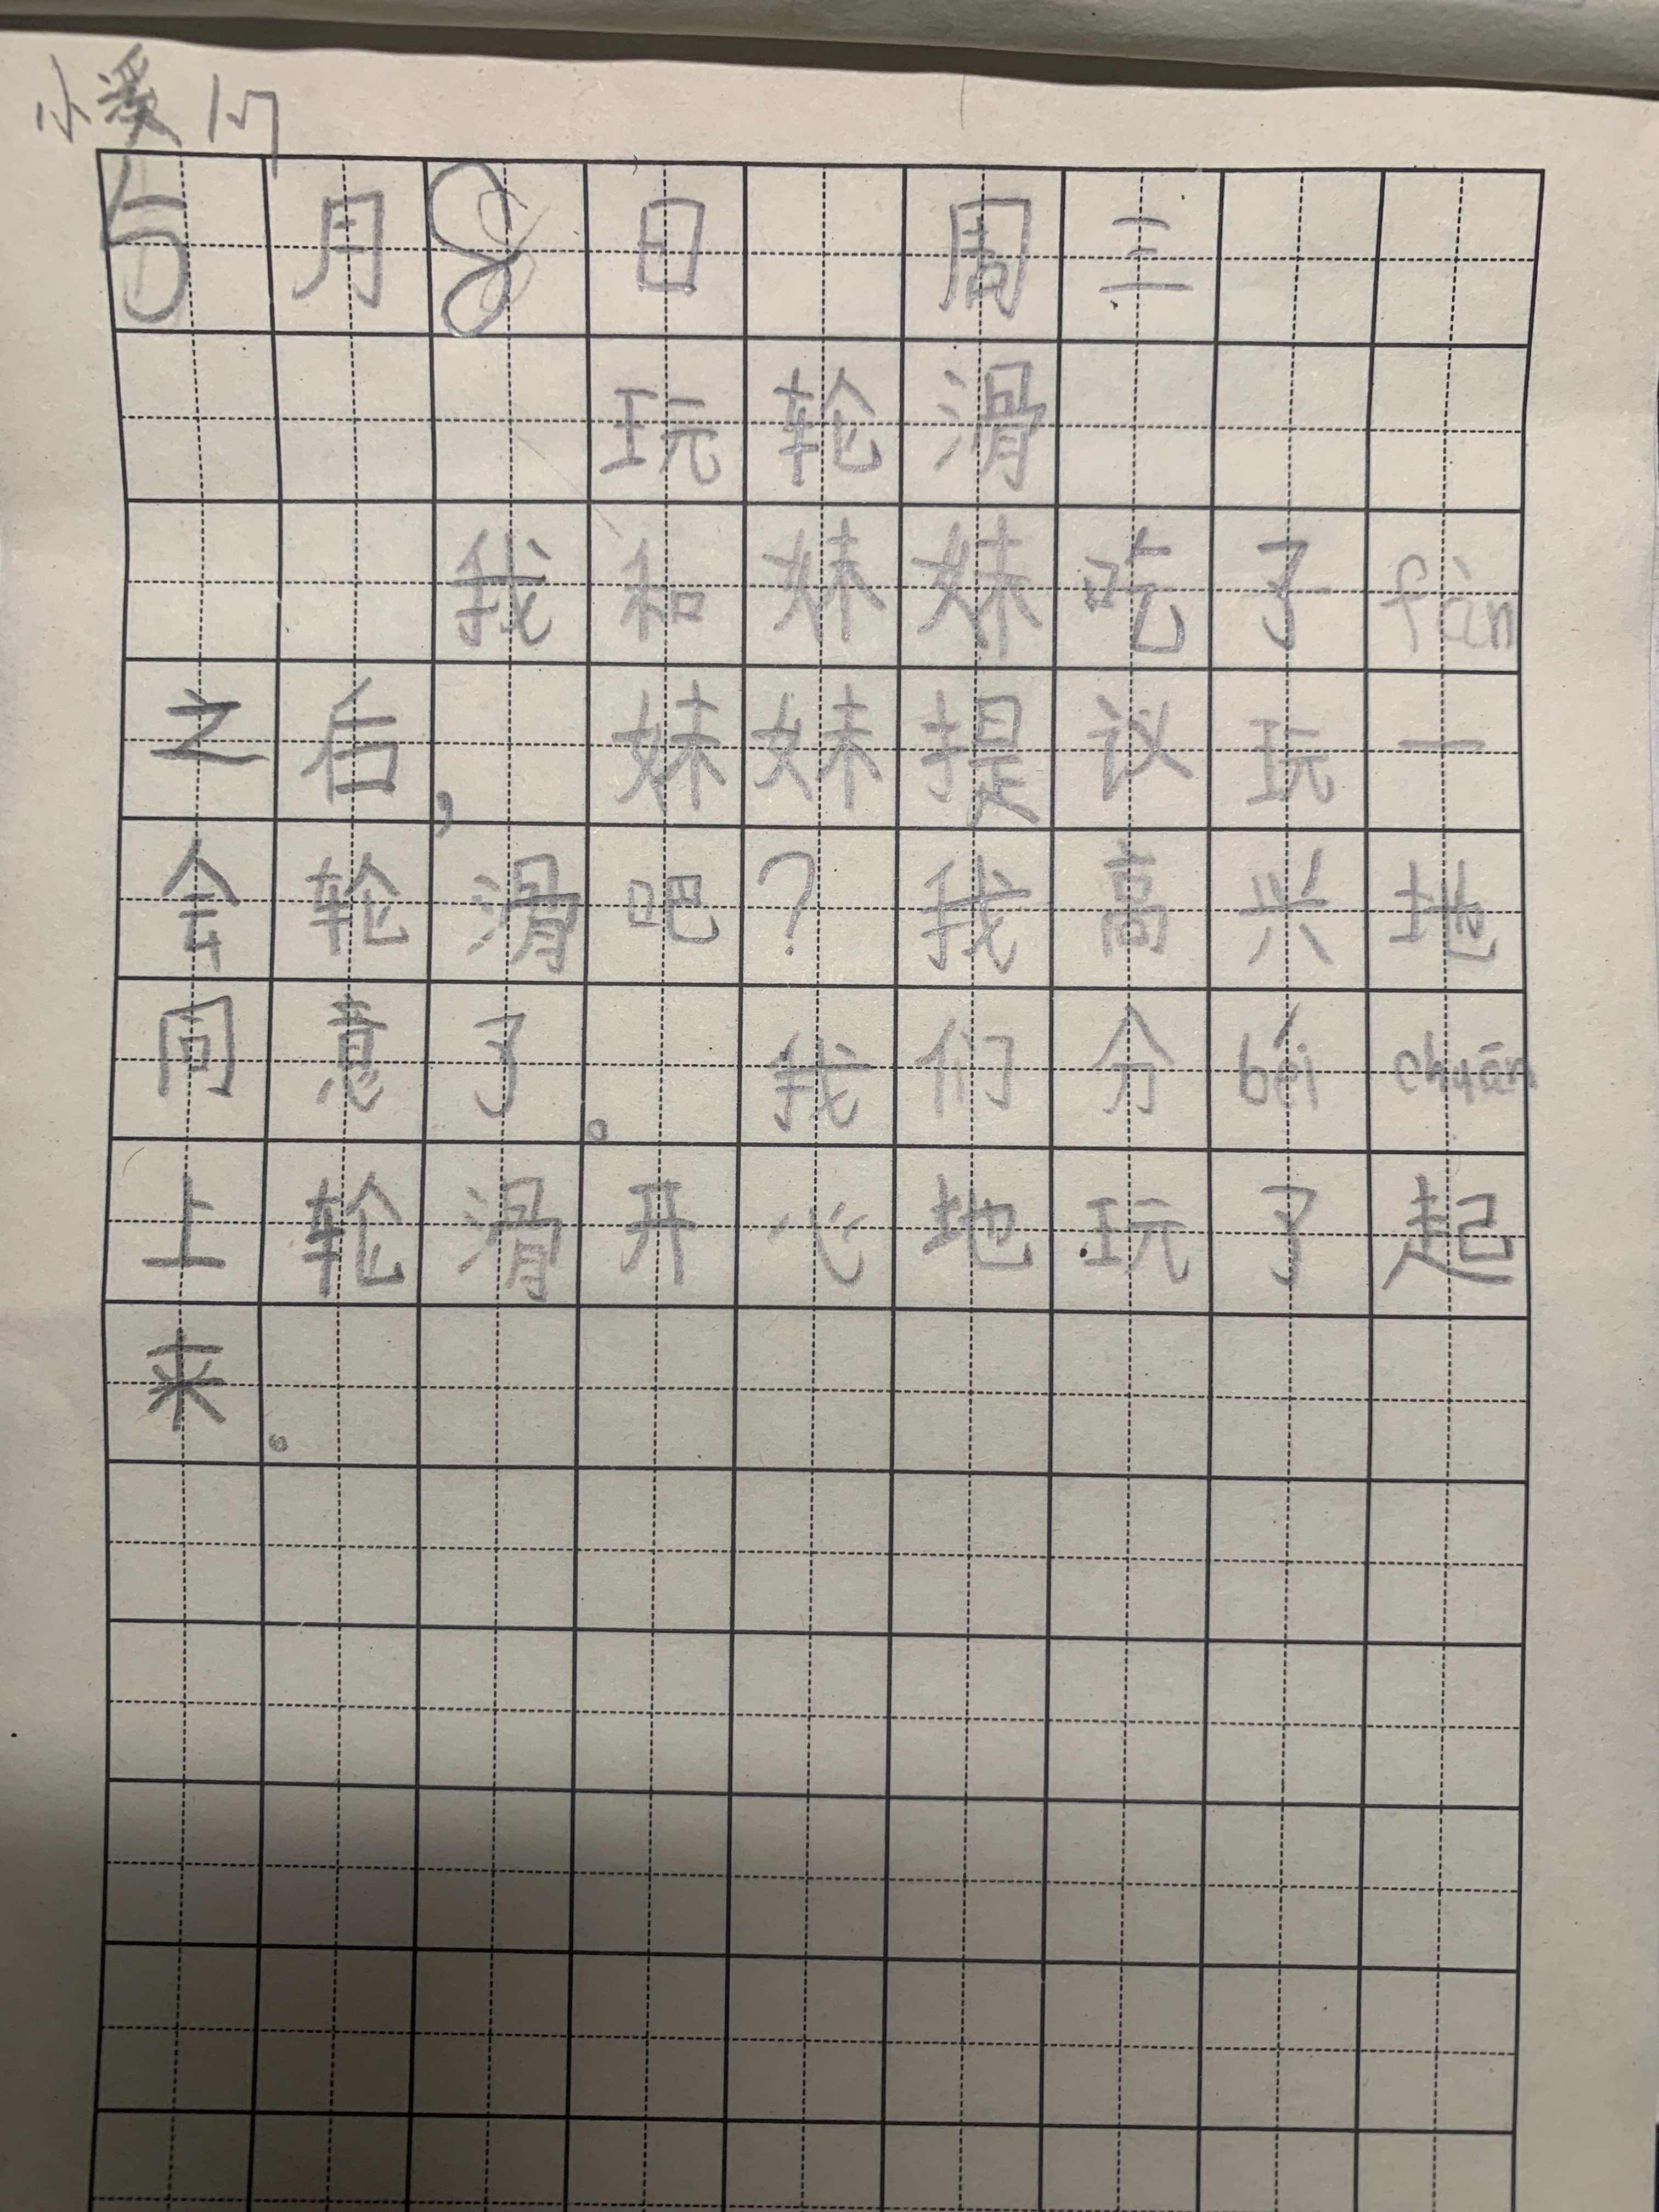 小溪 17
5月8日 周三
玩轮滑
我和妹妹吃了fàn
之后, 妹妹提议玩一
会轮滑吧?我高兴地
同意了。 我们分béi chuān
上轮滑开心地玩了起
来。